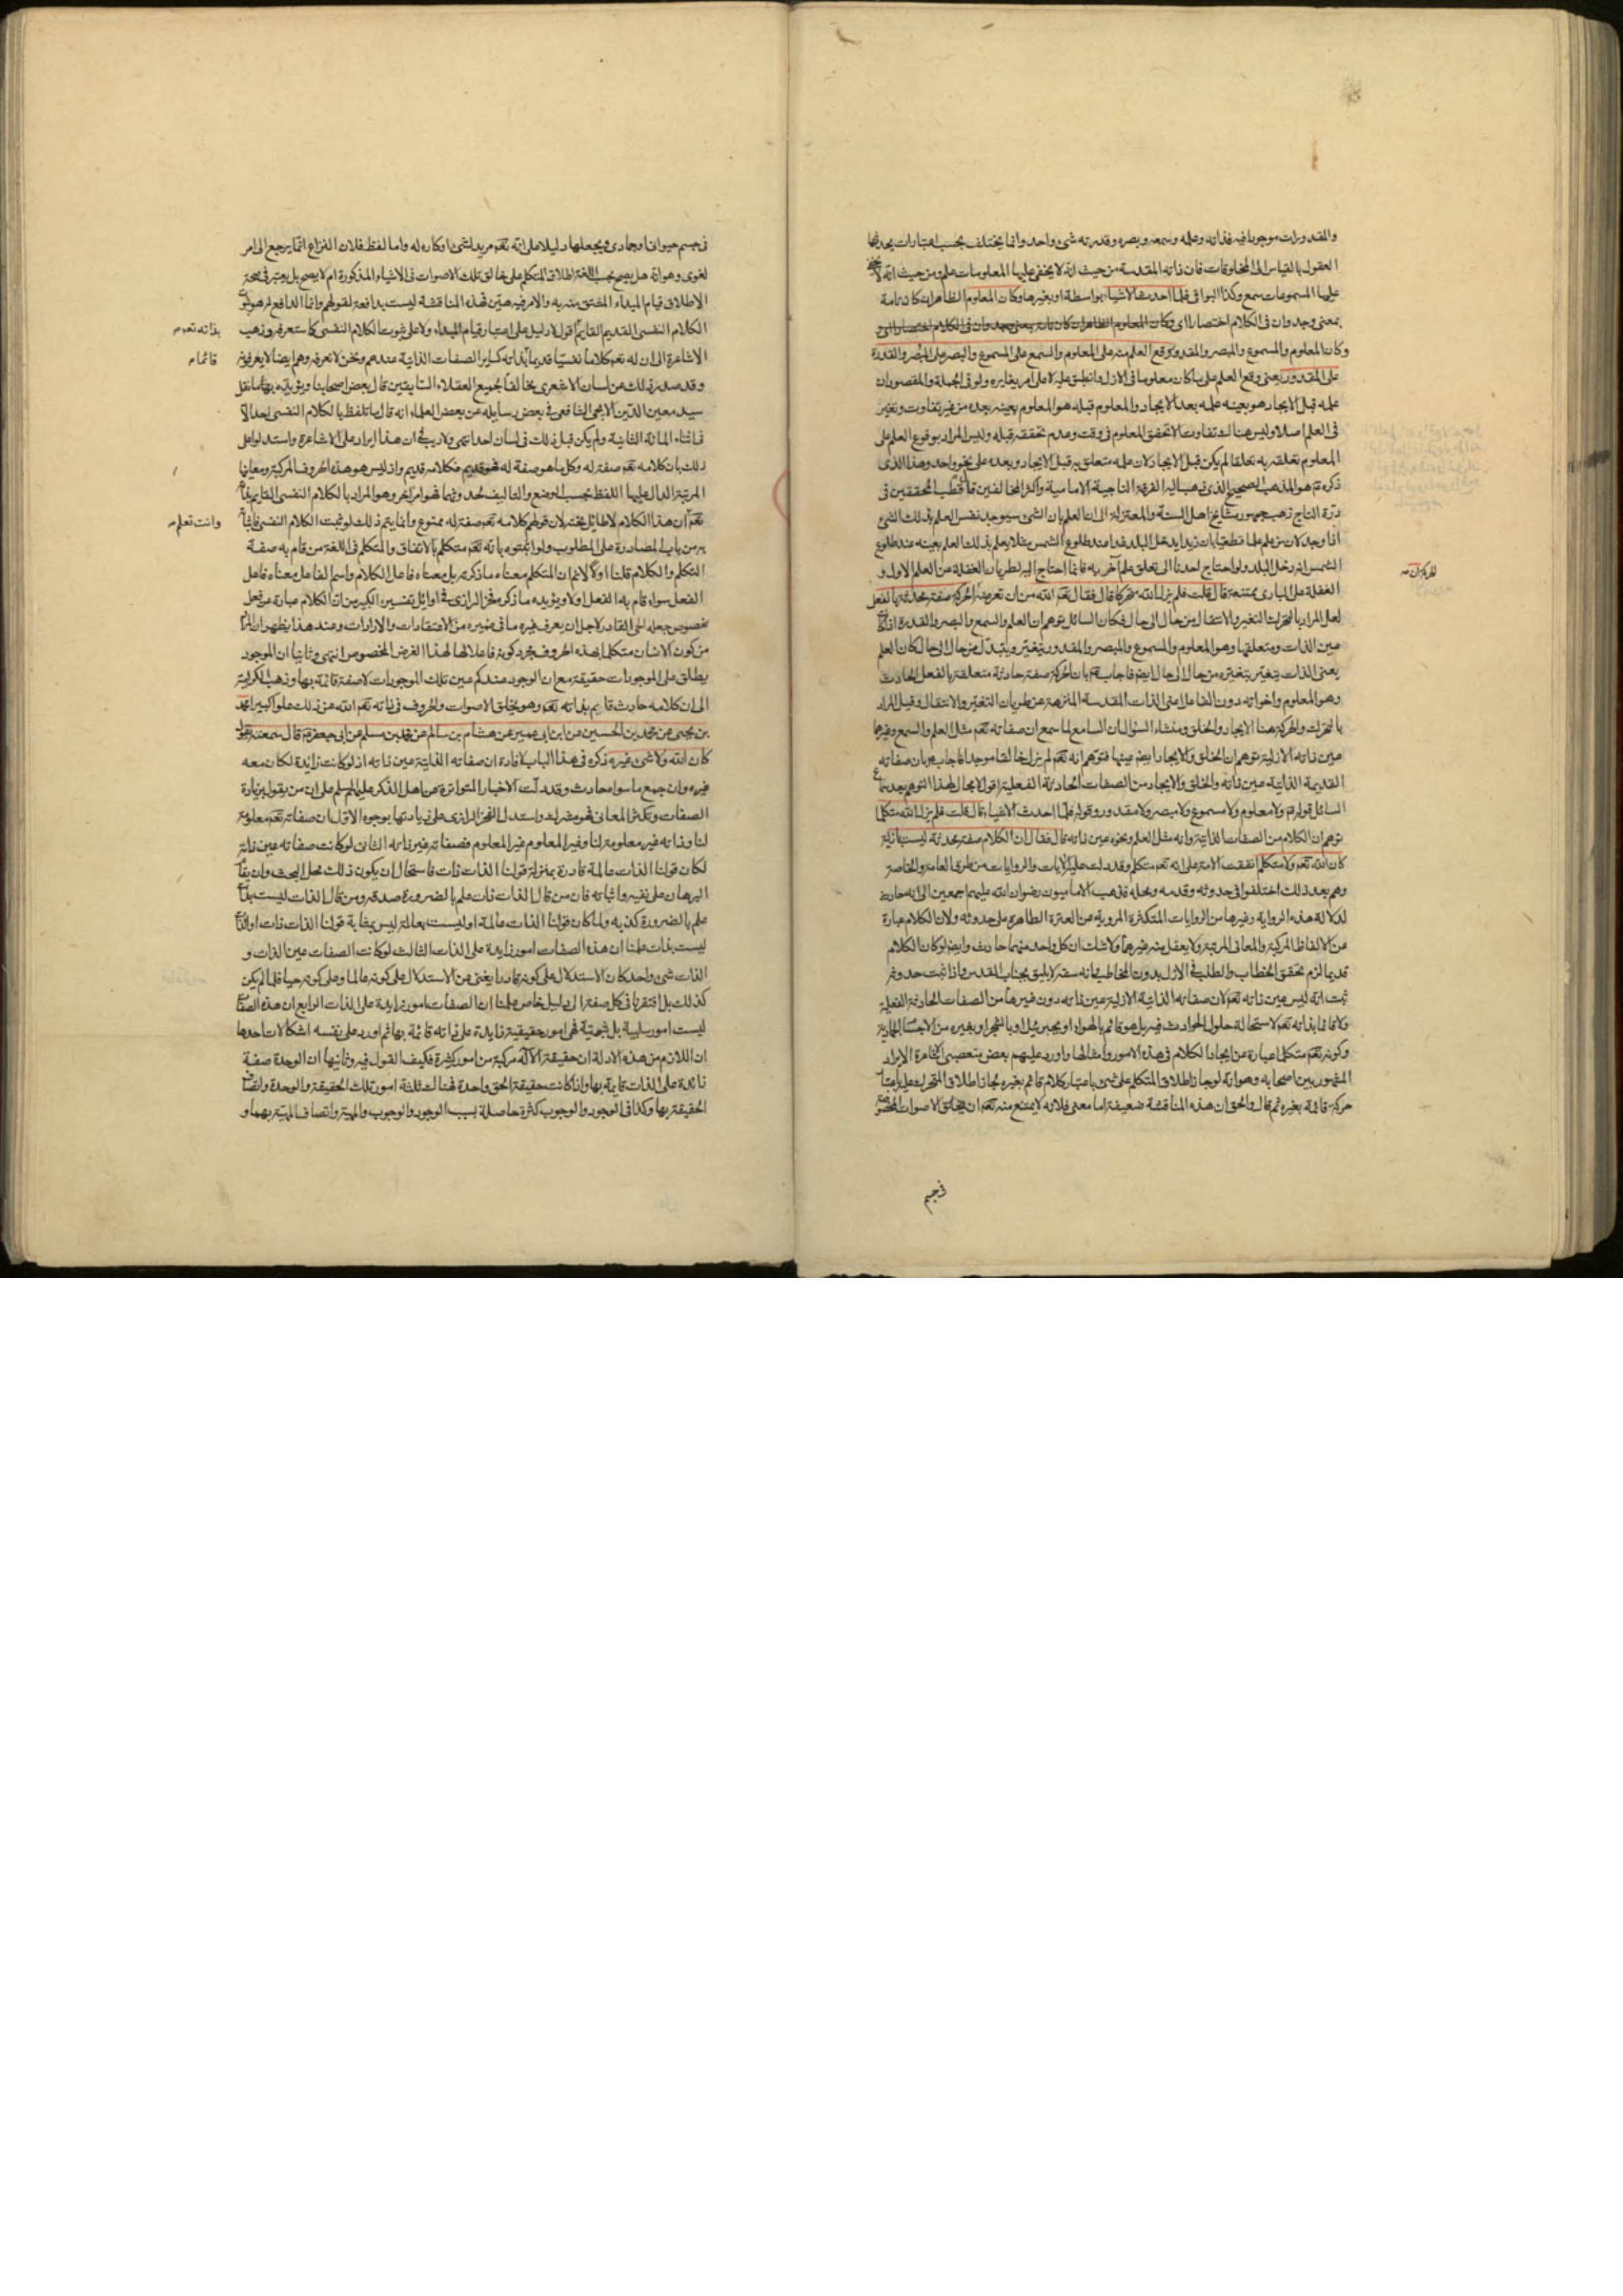 والمقدورات موجودا فيه فذاته وعلمه وسمعه وبصره وقدرته شئ واحد وانما يختلف بحسب اعتبارات يحدثها
العقول بالقياس الى المخلوقات فان ذاته المقدسة من حيث انه لا يخفى عليها المعلومات علم ومن حيث انه لا يخفى
عليها المسموعات سمع وكذا البواقى فلما احدث الاشياء بواسطة او بغيرها وكان المعلوم الظاهر ان كان تامة
بمعنى وجد وان فى الكلام اختصارا اى
وكان المعلوم والمسموع والمبصر والمقدور وقع العلم منه على المعلوم والسمع على المسموع والبصر على المبصر والقدرة
على المقدور يعنى وقع العلم على ما كان معلوما فى الازل وانطبق عليه لا على امر يغايره ولو فى الجملة والمقصود ان
علمه قبل الايجاد هو بعينه علمه بعد الايجاد والمعلوم قبله هو المعلوم بعينه بعده من غير تفاوت وتغير
فى العلم اصلا وليس هناك تفاوت الا تحقق المعلوم فى وقت وعدم تحققه قبله وليس المراد بوقوع العلم على
المعلوم تعلقه به تعلقا لم يكن قبل الايجاد لان علمه متعلق به قبل الايجاد وبعده على نحو واحد وهذا الذى
ذكره هو المذهب الصحيح الذى ذهب اليه الفرقة الناجية الامامية واكثر المخالفين قال قطب المحققين فى
درة التاج ذهب جمهور مشايخ اهل السنة والمعتزلة الى ان العلم بان الشئ سيوجد نفس العلم بذلك الشئ
اذا وجد لان من علم علما قطعيا بان زيدا يدخل البلد غدا عند طلوع الشمس مثلا يعلم بذلك العلم بعينه عند طلوع
الشمس انه دخل البلد ولو احتاج احدنا الى تعلق علم آخر به فانما احتاج اليه لطريان الغفلة عن العلم الاول و
الغفلة على البارى ممتنعة قال قلت فلم يزل الله متحركا قال فقال تعالى الله عن ذلك ان الحركة صفة محدثة بالفعل
لعل المراد بالتحرك التغير والانتقال من حال الى حال فكان السائل توهم ان العلم والسمع والبصر والقدرة اذا كانت
عين الذات ومتعلقها وهو المعلوم والمسموع والمبصر والمقدور يتغير ويتبدل من حال الى حال كان العلم
يعنى الذات يتغير بتغيره من حال الى حال ايضا فاجاب بان الحركة صفة حادثة متعلقة بالفعل الحادث
وهو المعلوم واخواته دون الفاعل اعنى الذات المقدسة المنزهة عن طريان التغير والانتقال وقيل المراد
بالتحرك والحركة هنا الايجاد والخلق ومنشاء السؤال ان السامع لما سمع ان صفاته تعم مثل العلم والسمع وغيرها
عين ذاته الازلية توهم ان الخلق والايجاد ايضا عينها فتوهم انه تعم لم يزل خالقا موجدا فاجاب بان صفاته
القديمة الذاتية عين ذاته والخلق والايجاد من الصفات الحادثة الفعلية اقول لا مجال لهذا التوهم بعد سماع
السائل قوله ولا معلوم ولا مسموع ولا مبصر ولا مقدور وقوله فلما احدث الاشياء قال قلت فلم يزل الله متكلما
توهم ان الكلام من الصفات الذاتية وانه مثل العلم ونحوه عين ذاته قال فقال ان الكلام صفة محدثة ليست بازلية
كان الله تعم ولا متكلم اتفقت الامة على انه تعم متكلم وقد دلت عليه الايات والروايات من طرق العامة والخاصة
وهم بعد ذلك اختلفوا فى حدوثه وقدمه ومحله فذهب الاماميون رضوان الله عليهم اجمعين الى انه حادث
لدلالة هذه الرواية وغيرها من الروايات المتكثرة المروية عن العترة الطاهرة على حدوثه ولان الكلام عبارة
عن الالفاظ المركبة والمعانى المرتبة ولا يعقل منه غيرهما ولا شك ان كل واحد منهما حادث وايضا لو كان الكلام
قديما لزم تحقق الخطاب والطلب فى الازل بدون المخاطب فانه سفه لا يليق بجناب القدس فاذا ثبت حدوثه
ثبت انه ليس عين ذاته تعم لان صفاته الذاتية الازلية عين ذاته دون غيرها من الصفات الحادثة الفعلية
ولا قائما بذاته تعم لاستحالة حلول الحوادث فيه بل هو قائم بالهواء او بجبرئيل او بالشجر او بغيره من الاجسام الجمادية
وكونه تعم متكلما عبارة عن ايجاد الكلام فى هذه الامور وامثالها واورد عليهم بعض متعصبى الاشاعرة الايراد
المشهور بين اصحابه وهو انه لو جاز اطلاق المتكلم على شئ باعتبار كلام قائم بغيره لجاز اطلاق المتحرك عليه باعتبار
حركة قائمة بغيره ثم قال والحق ان هذه المناقشة ضعيفة اما معنى فلانه لا يمتنع منه تعم ان يخلق الاصوات المخصوصة
فى جسم
فى جسم حيوانى او جمادى ويجعلها دليلا على انه تعم مريد لشئ او كاره له واما لفظ فلان النزاع انما يرجع الى امر
لغوى وهو انه هل يصح بحسب اللغة اطلاق المتكلم على خالق تلك الاصوات فى الاشياء المذكورة ام لا يصح بل يعتبر فى صحة
الاطلاق قيام المبداء المشتق منه به والامر فيه هين فهذه المناقشة ليست بدافعة لقولهم وانما الدافع له هو ثبوت
الكلام النفسى القديم القايم اقول لا دليل على اعتبار قيام المبداء ولا على ثبوت الكلام النفسى كما ستعرفه وذهب
بذاته تعم
الاشاعرة الى ان له تعم كلاما نفسيا قديما بذاته كساير الصفات الذاتية عندهم ونحن لا نعرفه وهم ايضا لا يعرفونه
قائما
وقد صدر ذلك عن لسان الاشعرى مخالفا لجميع العقلاء السابقين قال بعض اصحابنا ويؤيده ما نقل
سيد معين الدين الايجى الشافعى فى بعض رسايله عن بعض العلماء انه قال ما تلفظ بالكلام النفسى احد الا
فى اثناء المائة الثانية ولم يكن قبل ذلك فى لسان احد انتهى ولا ريب فى ان هذا ايراد على الاشاعرة واستدلوا على
ذلك بان كلامه تعم صفة له وكل ما هو صفة له فهو قديم فكلامه قديم واذ ليس هو هذه الحروف المركبة ومعانيها
المرتبة الدال عليها اللفظ بحسب الوضع والتاليف لحدوثها فهو امر اخر وهو المراد بالكلام النفسى القايم بذاته
تعم ان هذا الكلام لا طائل تحته لان قولهم كلامه تعم صفة له ممنوع وانما يتم ذلك لو ثبت الكلام النفسى فاثباته
وانت تعلم
به من باب المصادرة على المطلوب ولو اثبتوه بانه تعم متكلم بالاتفاق والمتكلم فى اللغة من قام به صفة
التكلم والكلام قلنا اولا لا نم ان المتكلم معناه ما ذكرتم بل معناه فاعل الكلام واسم الفاعل معناه فاعل
الفعل سواء قام به الفعل اولا ويؤيده ما ذكره فخر الرازى فى اوائل تفسيره الكبير من ان الكلام عبارة عن فعل
مخصوص جعله الحى القادر لاجل ان يعرف غيره ما فى ضميره من الاعتقادات والارادات وعند هذا يظهر ان المراد
من كون الانسان متكلما بهذه الحروف مجرد كونه فاعلا لها لهذا الغرض المخصوص انتهى وثانيا ان الموجود
يطلق على الموجودات حقيقة مع ان الوجود عندكم عين تلك الموجودات لا صفة قائمة بها وذهب الكرامية
الى ان كلامه حادث قايم بذاته تعم وهو يخلق الاصوات والحروف فى ذاته تعم الله عن ذلك علوا كبيرا محمد
بن يحيى عن محمد بن الحسين عن ابن ابى عمير عن هشام بن سالم عن محمد بن مسلم عن ابى جعفر قال سمعته يقول
كان الله ولا شئ غيره ذكره فى هذا الباب لافادة ان صفاته الذاتية عين ذاته اذ لو كانت زائدة لكان معه
غيره وان جمع ما سواه حادث وقد دلت الاخبار المتواترة عن اهل الذكر عليهم السلم على ان من يقول بزيادة
الصفات وتكثر المعانى فهو مشرك واستدل الفخر الرازى على زيادتها بوجوه الاول ان صفاته تعم معلومة
لنا وذاته غير معلومة لنا وغير المعلوم غير المعلوم فصفاته غير ذاته الثانى لو كانت صفاته عين ذاته
لكان قولنا الذات عالمة قادرة بمنزلة قولنا الذات ذات فاستحال ان يكون ذلك محل البحث وان يقام
البرهان على نفيه واثباته فان من قال الذات ذات علم بالضرورة صدقه ومن قال الذات ليست بذات
علم بالضرورة كذبه ولما كان قولنا الذات عالمة او ليست بعالمة ليس بمثابة قولنا الذات ذات او الذات
ليست بذات علمنا ان هذه الصفات امور زايدة على الذات الثالث لو كانت الصفات عين الذات و
الذات شئ واحد كان الاستدلال على كونه قادرا يغنى عن الاستدلال على كونه عالما وعلى كونه حيا فلما لم يكن
كذلك بل افتقرنا فى كل صفة الى دليل خاص علمنا ان الصفات امور زايدة على الذات الرابع ان هذه الصفات
ليست امور سلبية بل ثبوتية فهى امور حقيقية زايدة على ذاته قائمة بها ثم اورد على نفسه اشكالات احدها
ان اللازم من هذه الادلة ان حقيقة الاله مركبة من امور كثيرة فكيف القول فيه وثانيها ان الوحدة صفة
زائدة على الذات قايمة بها واذا كانت حقيقة الحق واحدة فهناك ثلثة امور تلك الحقيقة والوحدة واتصاف
الحقيقة بها وكذا فى الوجود والوجوب كثرة حاصلة بسبب الوجود والوجوب والمهية واتصاف المهية بهما و